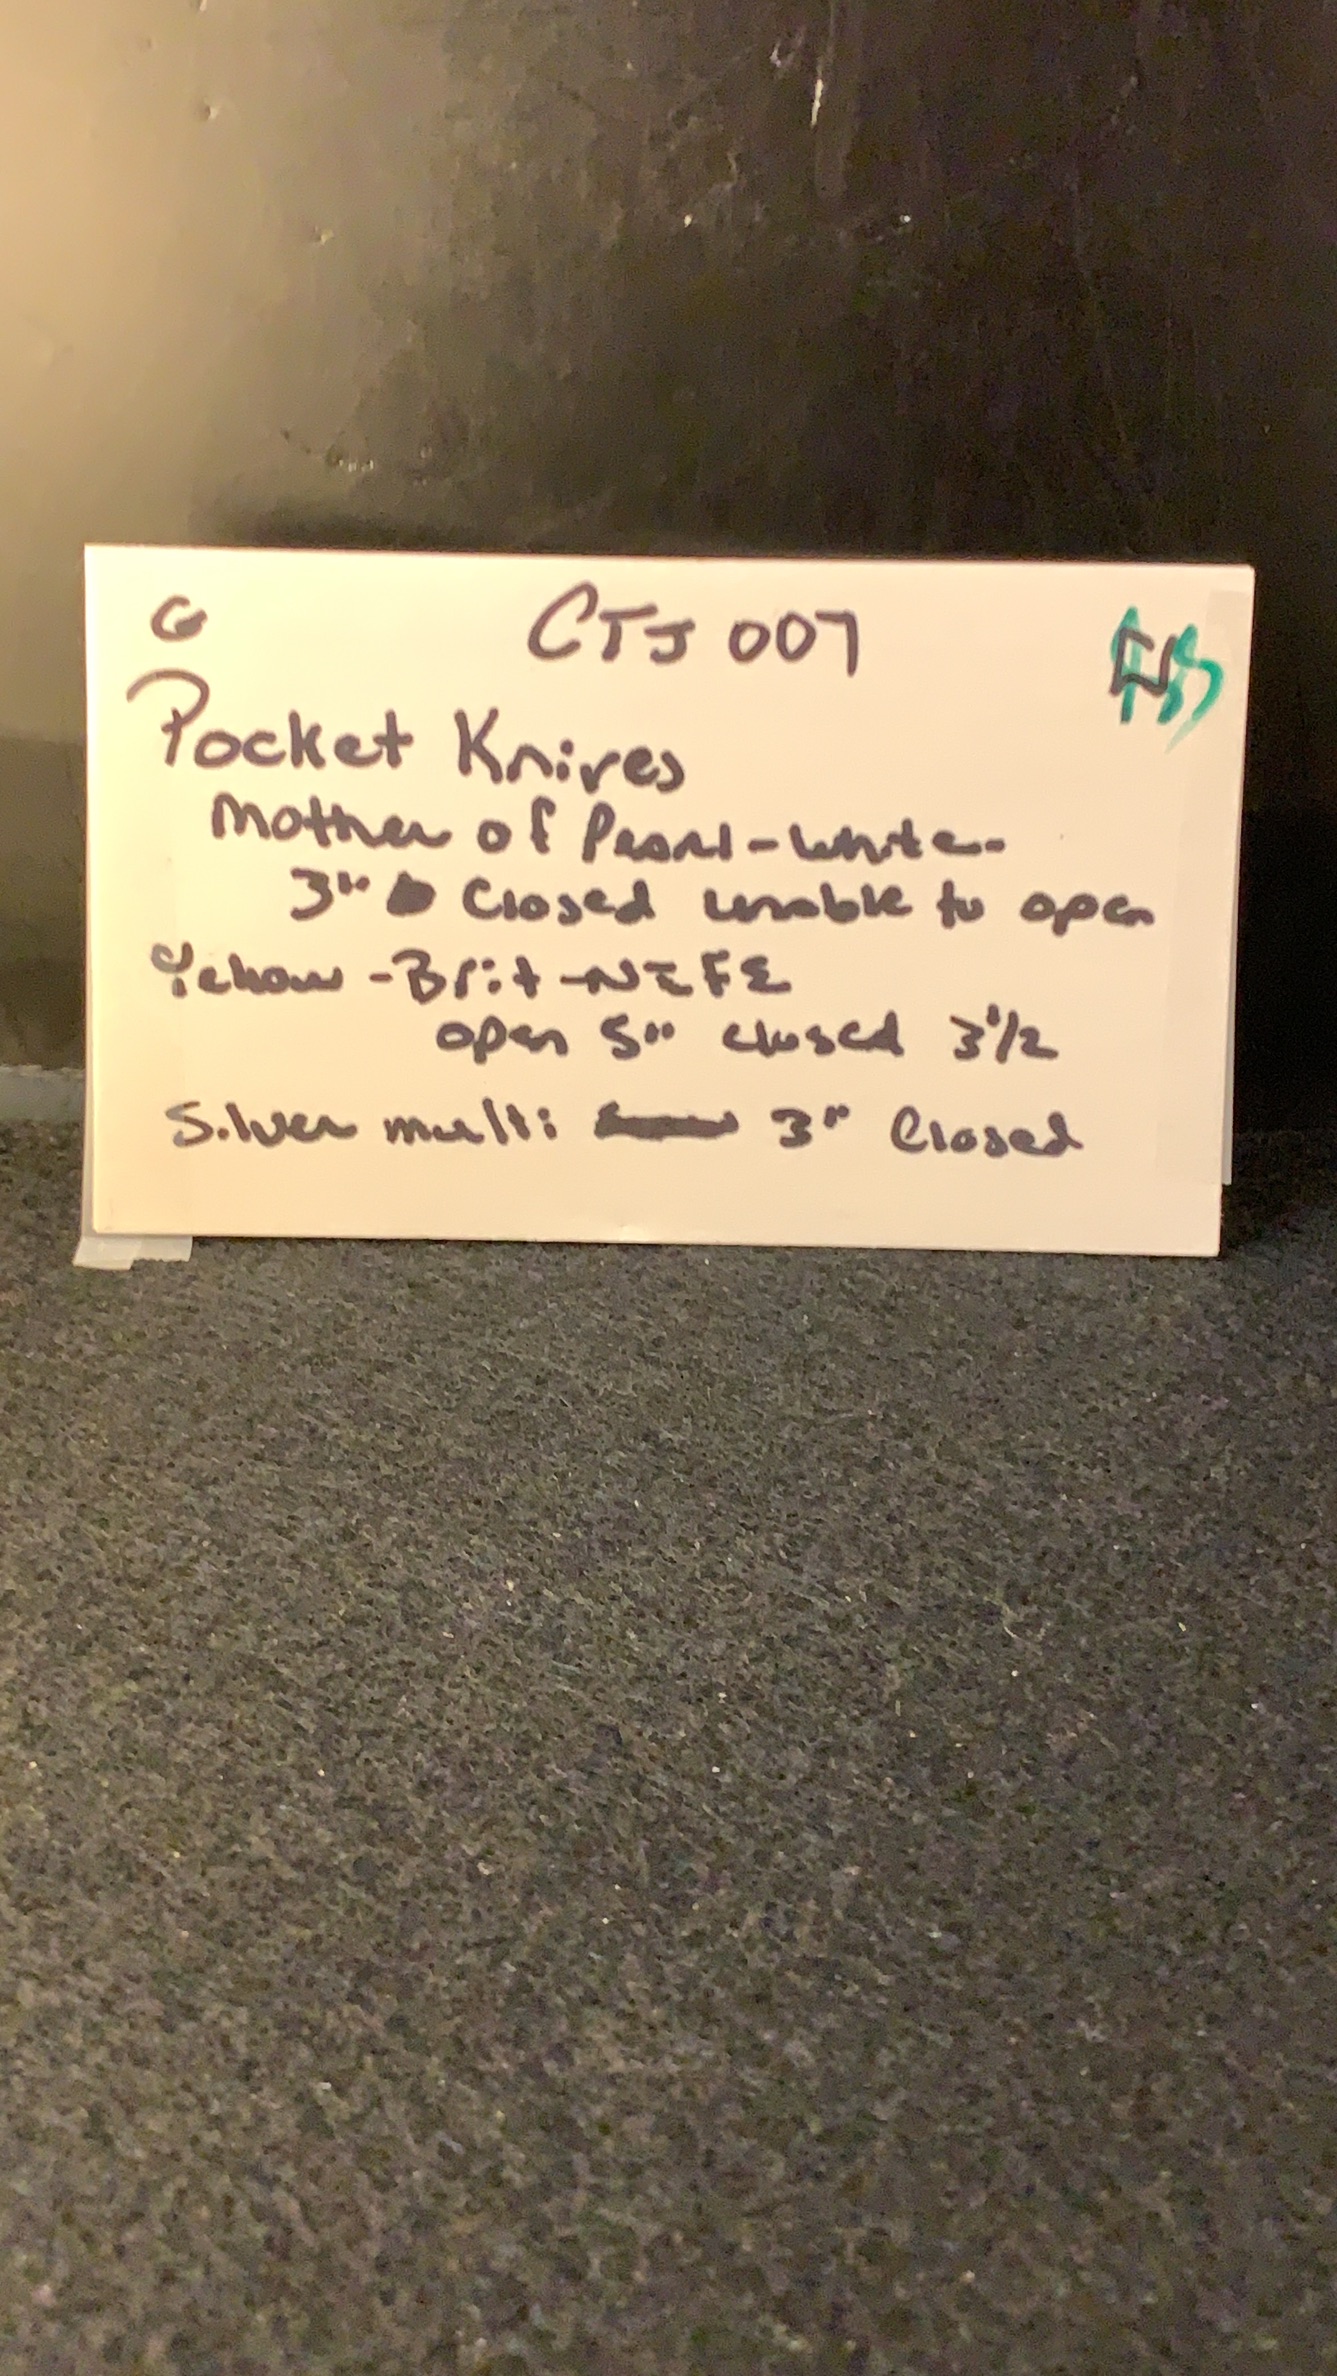 G CTJ 007
Pocket Knives
Mother of Pearl - White -
3" Closed unable to open
Yellow - Brit - NIFE
open 5" closed 3 1/2
Silver multi 3" Closed